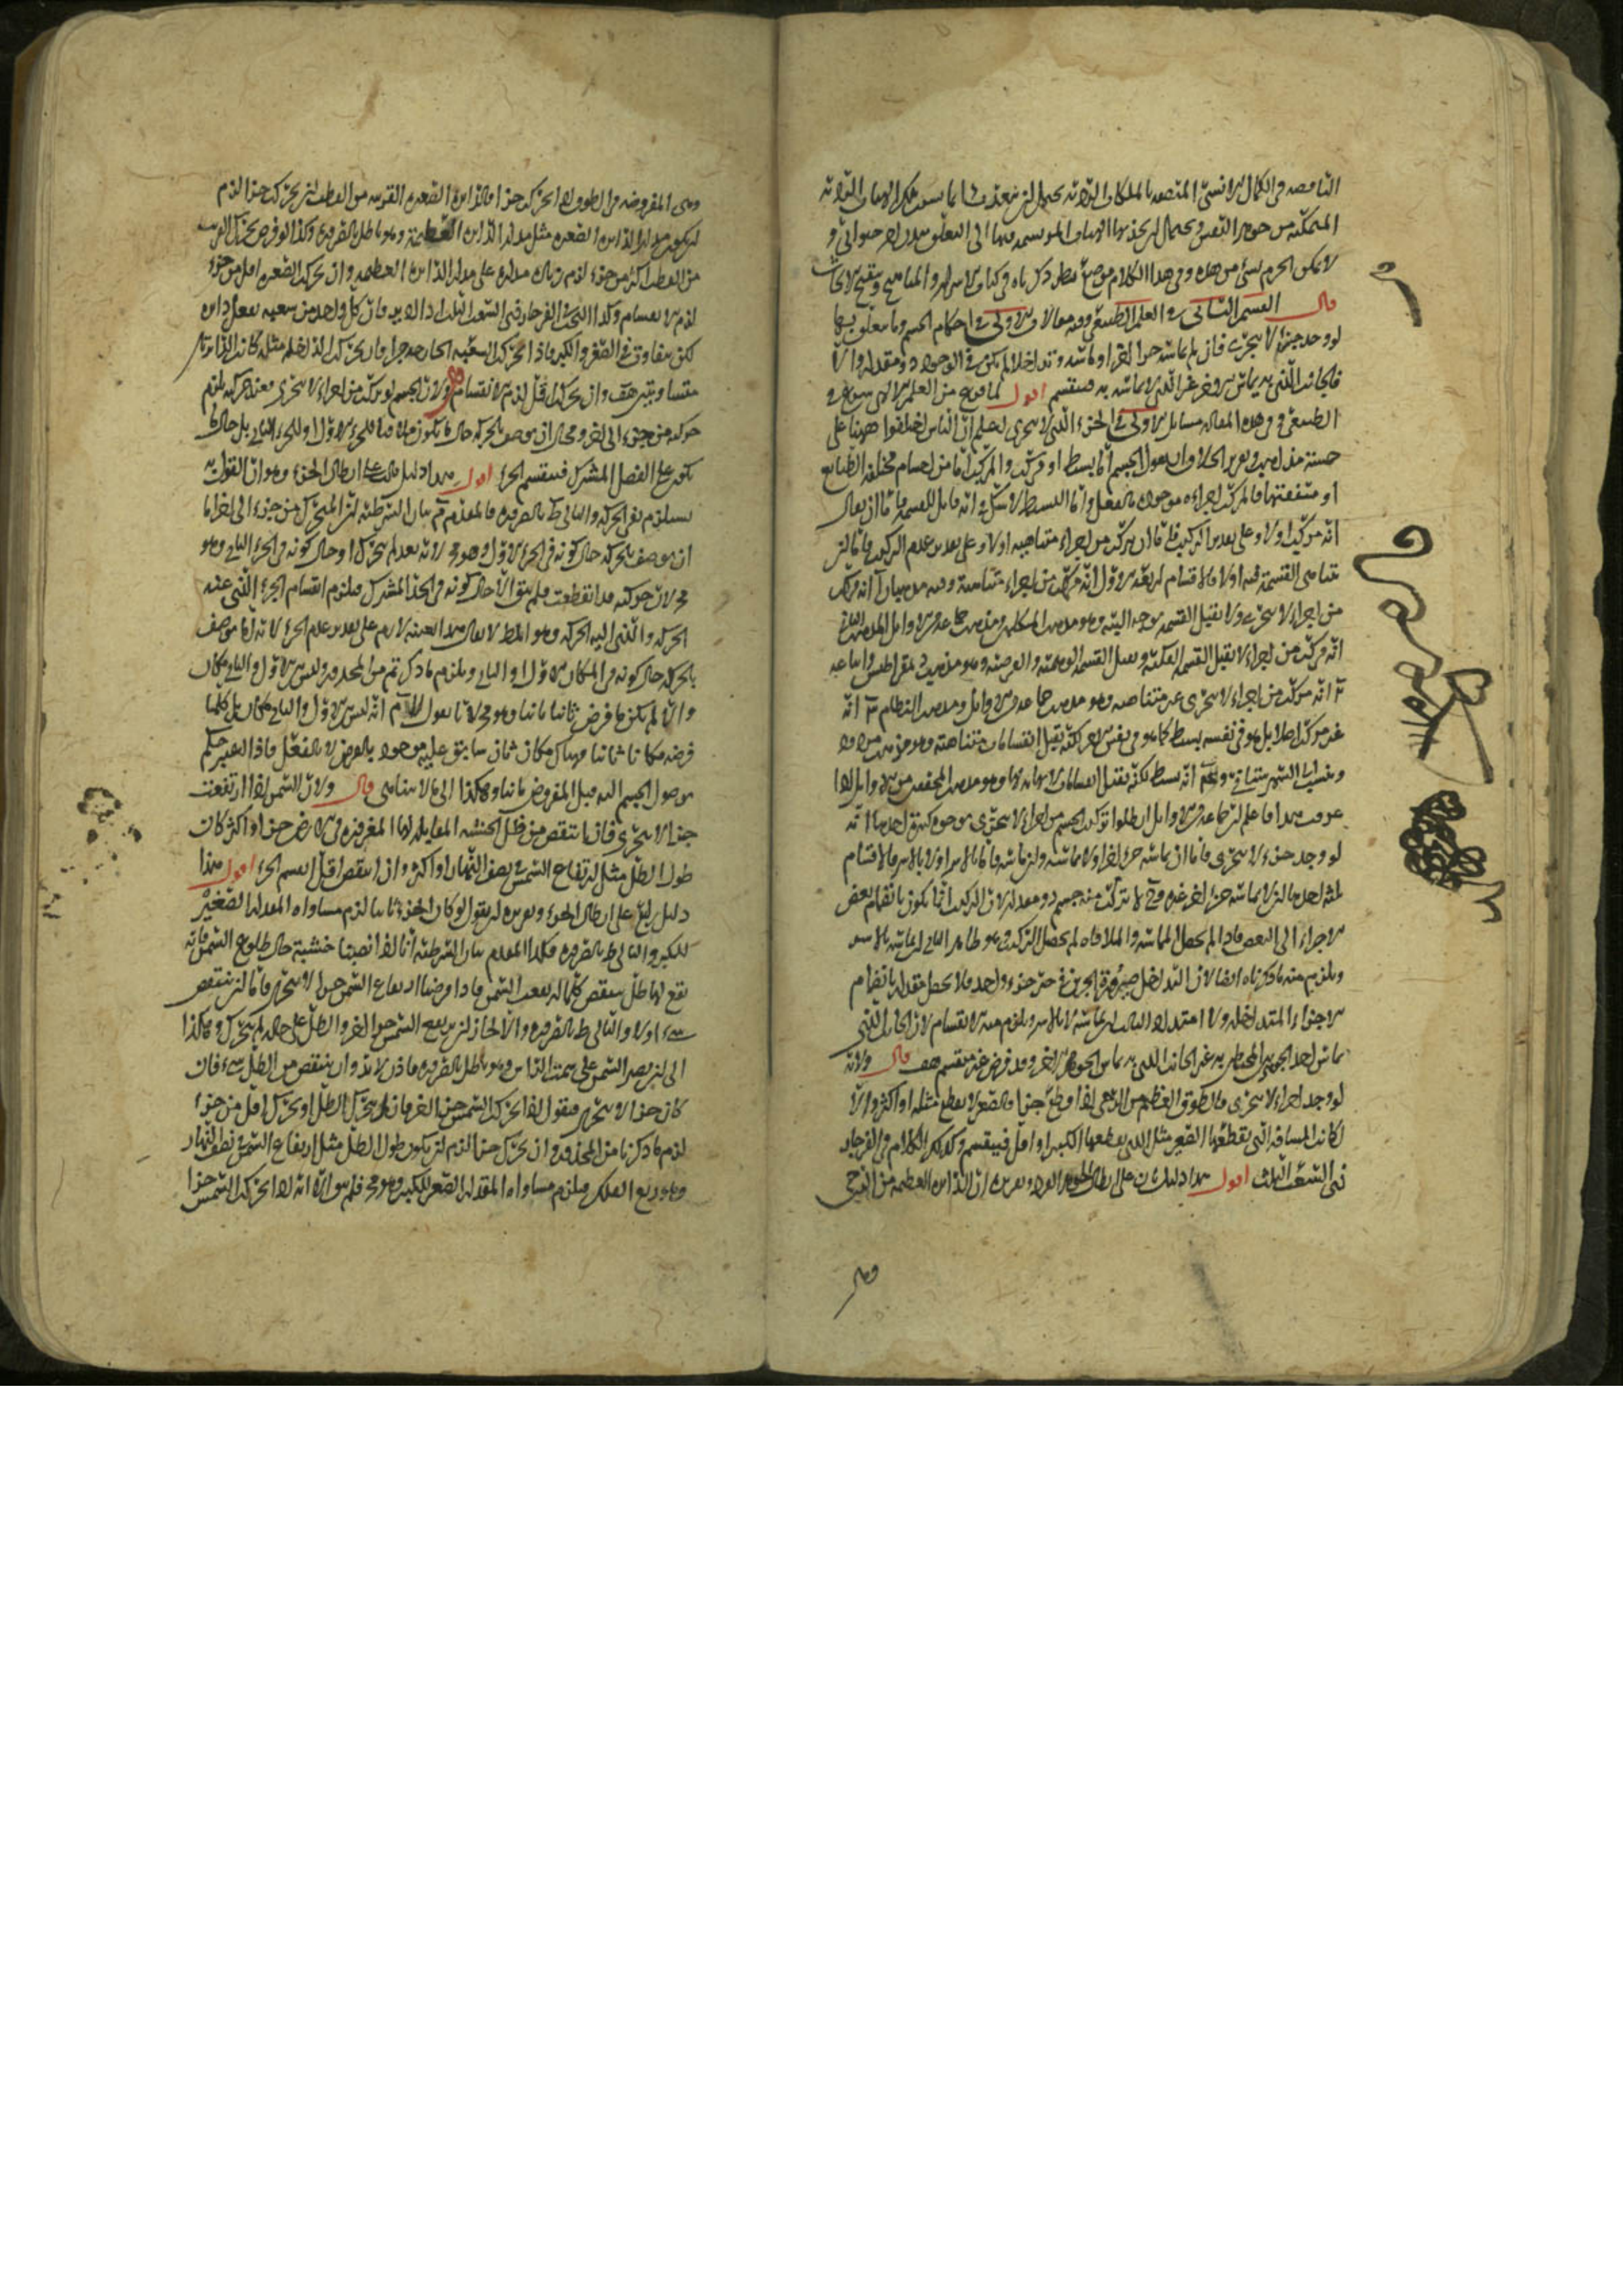 الناقصة في الكمال الانسي المتصفة بالملكات الردية
المتمكنة من جوهر النفس ويحتمل
لا يمكن الجزم بشيء من هذه وفي هذا الكلام موضع نظر ذكرناه في كتاب الاسرار
قال القسم الثاني في العلم الطبيعي وفيه مقالات الاولى في احكام الجسم وما يتعلق بها
لو وجد جزء لا يتجزى فان لم يماسه جزء اخر او ماسه وتداخلا لم يكن في الوجود ذو مقدار والا
فالجانب الذي به يماس الاخر غير الذي لا يماسه به فينقسم اقول لما فرغ من العلم الالهي شرع في
الطبيعي وفي هذه المقالة مسائل الاولى في الجزء الذي لا يتجزى اعلم ان الناس اختلفوا ههنا على
خمسة مذاهب وتقرير الخلاف ان نقول الجسم اما بسيط او مركب والمركب اما من اجسام مختلفة الطبايع
او متفقتها فالمركب اجزاءه موجودة بالفعل واما البسيط لا شك في انه قابل للقسمة فاما ان يقال
انه مركب اولا وعلى تقدير التركيب فاما ان يتركب من اجزاء متناهية اولا وعلى تقدير عدم التركيب فاما ان
تتناهى القسمة فيه اولا فالاقسام اربعة الاول انه مركب من اجزاء متناهية
من اجزاء لا تتجزى ولا تقبل القسمة بوجه البتة وهو مذهب المتكلمين ومذهب جماعة من الاوايل
انه مركب من اجزاء لا تقبل القسمة الفكية وتقبل القسمة الوهمية والفرضية وهو مذهب ذيمقراطيس واتباعه
انه مركب من اجزاء لا تتجزى غير متناهية وهو مذهب جماعة من الاوايل ومذهب النظام انه
غير مركب اصلا بل هو في نفسه بسيط كما هو في نفس الامر لكنه يقبل انقسامات متناهية وهو
انه بسيط لكنه يقبل انقسامات لا نهاية لها وهو مذهب المحققين من الاوايل اذا
عرفت هذا فاعلم ان جماعة من الاوايل ابطلوا تركب الجسم من اجزاء لا تتجزى بوجوه كثيرة احدها انه
لو وجد جزء لا يتجزى فاما ان يماسه جزء اخر او لا يماسه وان ماسه فاما بالاسر اولا بالاسر فالاقسام
ثلثة احدها ان لا يماسه جزء اخر غيره وح لا يتركب منه جسم ذو مقدار لان التركيب انما يكون بانضمام بعض
الاجزاء الى البعض فاذا لم يحصل المماسة والملاقاة لم يحصل التركيب وهو ظاهر الثاني ان يماسه بالاسر
ويلزم منه ما ذكرناه ايضا لان التداخل صيرورة الجزئين في حيز جزء واحد فلا يحصل مقدار بانضمام
الاجزاء المتداخلة ولا امتداد الثالث ان يماسه لا بالاسر ويلزم منه الانقسام لان الجانب الذي
يماس احد الجوهرين المحيطين به غير الجانب الذي به يماس الجوهر الاخر وقد فرض غير منقسم هف قال ولانه
لو وجد اجزاء لا تتجزى فالطوق العظيم من الرحى اذا قطع جزءا فالصغير لا يقطع مثله او اكثر والا
لكانت المسافة التي يقطعها الصغير مثل التي يقطعها الكبير او اقل فينقسم وكذلك الكلام في الفرجار
ذي الشعب الثلث اقول هذا دليل ثان على ابطال الجوهر الفرد وتقريره ان الدايرة العظيمة من الرحى
وهي
وهي المفروضة في الطوق اذا تحركت جزءا فالدايرة الصغيرة القريبة من القطب ان تحركت جزءا لزم
ان يكون مدار الدايرة الصغيرة مثل مدار الدايرة العظيمة وهو باطل بالضرورة وكذا لو فرض تحرك القريبة
من القطب اكثر من جزء لزم زيادة مداره على مدار الدايرة العظيمة وان تحركت الصغيرة اقل من جزء
لزم الانقسام وكذا البحث في الفرجار ذي الشعب الثلث اذا ادير فان كل واحد من شعبه يفعل دايرة
لكن يتفاوت في الصغر والكبر فاذا تحركت الشعبة الخارجة جزءا فان تحركت الداخلة مثله كانت الدايرتان
متساويتين هف وان تحركت اقل لزم الانقسام قال ولان الجسم لو تركب من اجزاء لا تتجزى فعند حركته يلزم
حركته من جزء الى اخر ومحال ان يوصف بالحركة حال ما يكون ملاقيا للجزء الاول او للجزء الثاني بل حال ما
يكون على الفصل المشترك فينقسم الجزء اقول هذا دليل ثالث على ابطال الجزء وهو ان القول به
يستلزم نفي الحركة والتالي باطل بالضرورة فالمقدم مثله بيان الشرطية ان المتحرك من جزء الى اخر اما
ان يوصف بالحركة حال كونه في الجزء الاول وهو مح لانه بعد لم يتحرك او حال كونه في الجزء الثاني وهو
مح لان حركته قد انقطعت فلم يبق الا حال كونه في الحد المشترك فيلزم انقسام الجزء الذي عنه
الحركة والذي اليه الحركة وهو المط لا يقال هذا بعينه لازم على تقدير عدم الجزء لانه اما يوصف
بالحركة حال كونه في المكان الاول او الثاني ويلزم ما ذكرتم من المحذور وليس بين الاول والثاني مكان
والا لم يكن ما فرض ثانيا ثانيا وهو مح لانا نقول لا نسلم انه ليس بين الاول والثاني مكان بل كلما
فرض مكانا ثانيا فهناك مكان ثان سابق عليه موجود بالفرض لا بالفعل
موصول الجسم اليه قبل المفروض ثانيا وهكذا الى ما لا يتناهى قال ولان الشمس اذا ارتفعت
جزءا لا يتجزى فان ما ينتقص من ظل الخشبة المقابلة لها المغروزة في الارض جزءا او اكثر كان
طول الظل مثل ارتفاع الشمس في نصف النهار او اكثر وان انتقص اقل انقسم الجزء اقول هذا
دليل رابع على ابطال الجزء وتقريره ان نقول لو كان الجزء ثابتا لزم مساواة المقدار الصغير
للكبير والتالي باطل بالضرورة فكذا المقدم بيان الشرطية انا اذا نصبنا خشبة حال طلوع الشمس فانه
يقع لها ظل ينتقص كلما ارتفعت الشمس فاذا فرضنا ارتفاع الشمس جزءا لا يتجزى فاما ان ينتقص
شيء اولا والتالي باطل بالضرورة والا لجاز ان ترتفع الشمس جزءا اخر والظل على حاله لم يتحرك وهكذا
الى ان تصير الشمس على سمت الراس وهو باطل بالضرورة فاذن لابد وان ينتقص من الظل شيء فان
كان جزءا لا يتجزى فنقول اذا تحركت الشمس جزءا اخر فاما ان يتحرك الظل او يتحرك اقل من جزء
لزم ما ذكرنا من المحذور وان تحرك جزءا لزم ان يكون طول الظل مثل ارتفاع الشمس نصف النهار
وهو ربع الفلك فيلزم مساواة المقدار الصغير للكبير وهو مح فلم يبق الا انه اذا تحركت الشمس جزءا